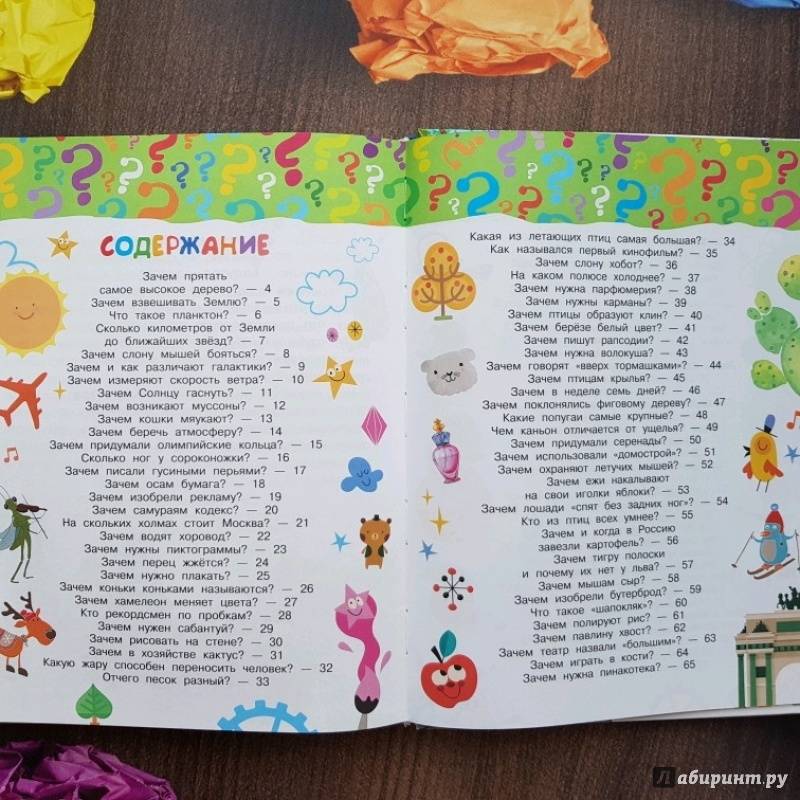 СОДЕРЖАНИЕ
Зачем прятать
самое высокое дерево? — 4
Зачем взвешивать Землю? — 5
Что такое планктон? — 6
Сколько километров от Земли
до ближайших звёзд? — 7
Зачем слону мышей бояться? — 8
Зачем и как различают галактики? — 9
Зачем измеряют скорость ветра? — 10
Зачем Солнцу гаснуть? — 11
Зачем возникают муссоны? — 12
Зачем кошки мяукают? — 13
Зачем беречь атмосферу? — 14
Зачем придумали олимпийские кольца? — 15
Сколько ног у сороконожки? — 16
Зачем писали гусиными перьями? — 17
Зачем осам бумага? — 18
Зачем изобрели рекламу? — 19
Зачем самураям кодекс? — 20
На скольких холмах стоит Москва? — 21
Зачем водят хоровод? — 22
Зачем нужны пиктограммы? — 23
Зачем перец жжётся? — 24
Зачем нужно плакать? — 25
Зачем коньки коньками называются? — 26
Зачем хамелеон меняет цвета? — 27
Кто рекордсмен по пробкам? — 28
Зачем нужен сабантуй? — 29
Зачем рисовать на стене? — 30
Зачем в хозяйстве кактус? — 31
Какую жару способен переносить человек? — 32
Отчего песок разный? — 33
Какая из летающих птиц самая большая? — 34
Как назывался первый кинофильм? — 35
Зачем слону хобот? — 36
На каком полюсе холоднее? — 37
Зачем нужна парфюмерия? — 38
Зачем нужны карманы? — 39
Зачем птицы образуют клин? — 40
Зачем берёзе белый цвет? — 41
Зачем пишут рапсодии? — 42
Зачем нужна волокуша? — 43
Зачем говорят «вверх тормашками»? — 44
Зачем птицам крылья? — 45
Зачем в неделе семь дней? — 46
Зачем поклонялись фиговому дереву? — 47
Какие попугаи самые крупные? — 48
Чем каньон отличается от ущелья? — 49
Зачем придумали серенады? — 50
Зачем использовали «домострой»? — 51
Зачем охраняют летучих мышей? — 52
Зачем ежи накалывают
на свои иголки яблоки? — 53
Зачем лошади «спят без задних ног»? — 54
Кто из птиц всех умнее? — 55
Зачем и когда в Россию
завезли картофель? — 56
Зачем тигру полоски
и почему их нет у льва? — 57
Зачем мышам сыр? — 58
Зачем изобрели бутерброд? — 59
Что такое «шапокляк»? — 60
Зачем полируют рис? — 61
Зачем павлину хвост? — 62
Зачем театр назвали «большим»? — 63
Зачем играть в кости? — 64
Зачем нужна пинакотека? — 65
Лабиринт.ру